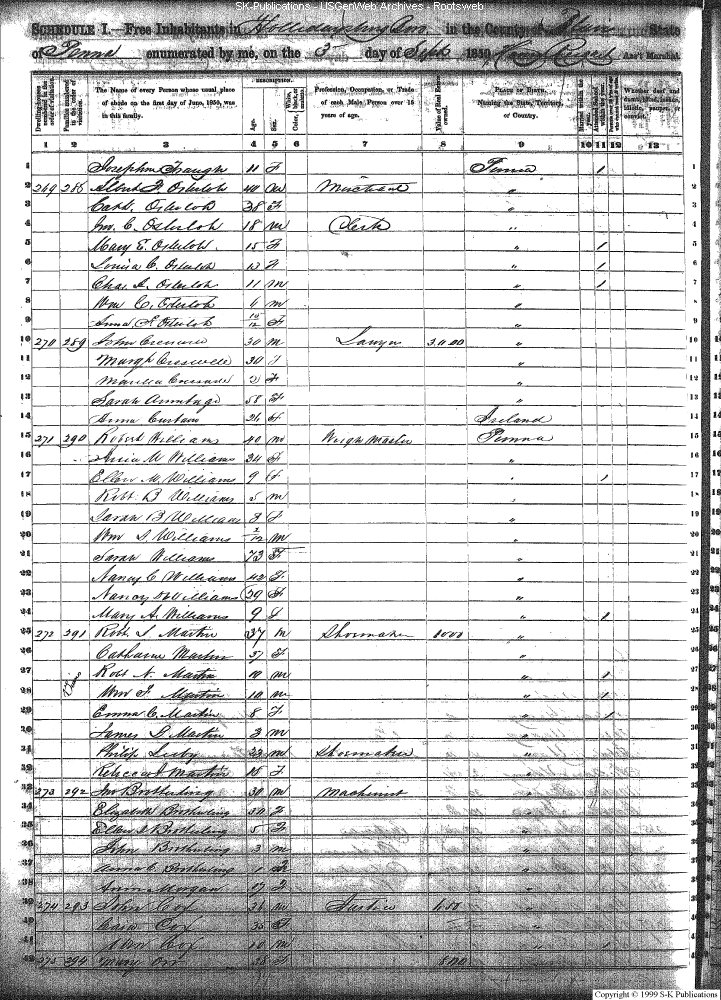 SK-Publications - USGenWeb Archives - Rootsweb
SCHEDULE I.—Free Inhabitants in Hollidaysburg Boro in the County of Blair State
of Penna enumerated by me, on the 3 day of Sept 1850. Ass't Marshal.
Dwelling-houses numbered in the order of visitation. Families numbered in the order of visitation. The Name of every Person whose usual place of abode on the first day of June, 1850, was in this family. DESCRIPTION. Age. Sex. Color, White, black, or mulatto. Profession, Occupation, or Trade of each Male Person over 15 years of age. Value of Real Estate owned. PLACE OF BIRTH. Naming the State, Territory, or Country. Married within the year. Attended School within the year. Whether deaf and dumb, blind, insane, idiotic, pauper, or convict.
1 2 3 4 5 6 7 8 9 10 11 12 13
1 Josephine 11 F Penna 1 1
2 269 286 Albert F Osterloh 40 m " 2
3 Cath. Osterloh 38 F " 3
4 Jno. C. Osterloh 18 m Clerk " 4
5 Mary E. Osterloh 15 F " 1 5
6 Louisa C. Osterloh 13 F " 1 6
7 Chas. A. Osterloh 11 m " 1 7
8 Wm C. Osterloh 6 m " 8
9 Anna F. Osterloh 10/12 F " 9
10 270 289 John 30 m Lawyer 3000 " 10
11 Margt Cresswell 30 F " 11
12 F " 12
13 Sarah Armitage 58 F " 13
14 Anna 26 F Ireland 14
15 271 290 Robert Williams 40 m Weigh Master Penna 15
16 M Williams 34 F " 16
17 Ellen M. Williams 9 F " 1 17
18 Robt. B Williams 5 m " 18
19 Sarah B Williams 3 F " 19
20 Wm Williams 2/12 m " 20
21 Sarah Williams 73 F " 21
22 Nancy C Williams 42 F " 22
23 Nancy Williams 39 F " 23
24 Mary A. Williams 9 F " 1 24
25 272 291 Robt. S. Martin 37 m Shoemaker 1000 " 25
26 Catharine Martin 37 F " 26
27 Robt N. Martin 10 m " 1 27
28 Twins Wm F. Martin 10 m " 1 28
29 Emma C. Martin 8 F " 1 29
30 James Martin 3 m " 30
31 Philip 23 m Shoemaker " 31
32 Rebecca Martin 18 F " 32
33 273 292 Jno Brotherling 30 m Machinist " 33
34 Elizabeth Brotherling 30 F " 34
35 Ellen Brotherling 5 F " 35
36 John Brotherling 3 m " 36
37 Anna Brotherling 1 F " 37
38 Morgan 17 F " 38
39 274 293 John Cox 36 m Justice " 39
40 Cox 35 F " 40
41 Cox 10 m " 1 41
42 275 294 Mary Orr 58 F 800 " 42
Copyright © 1999 S-K Publications